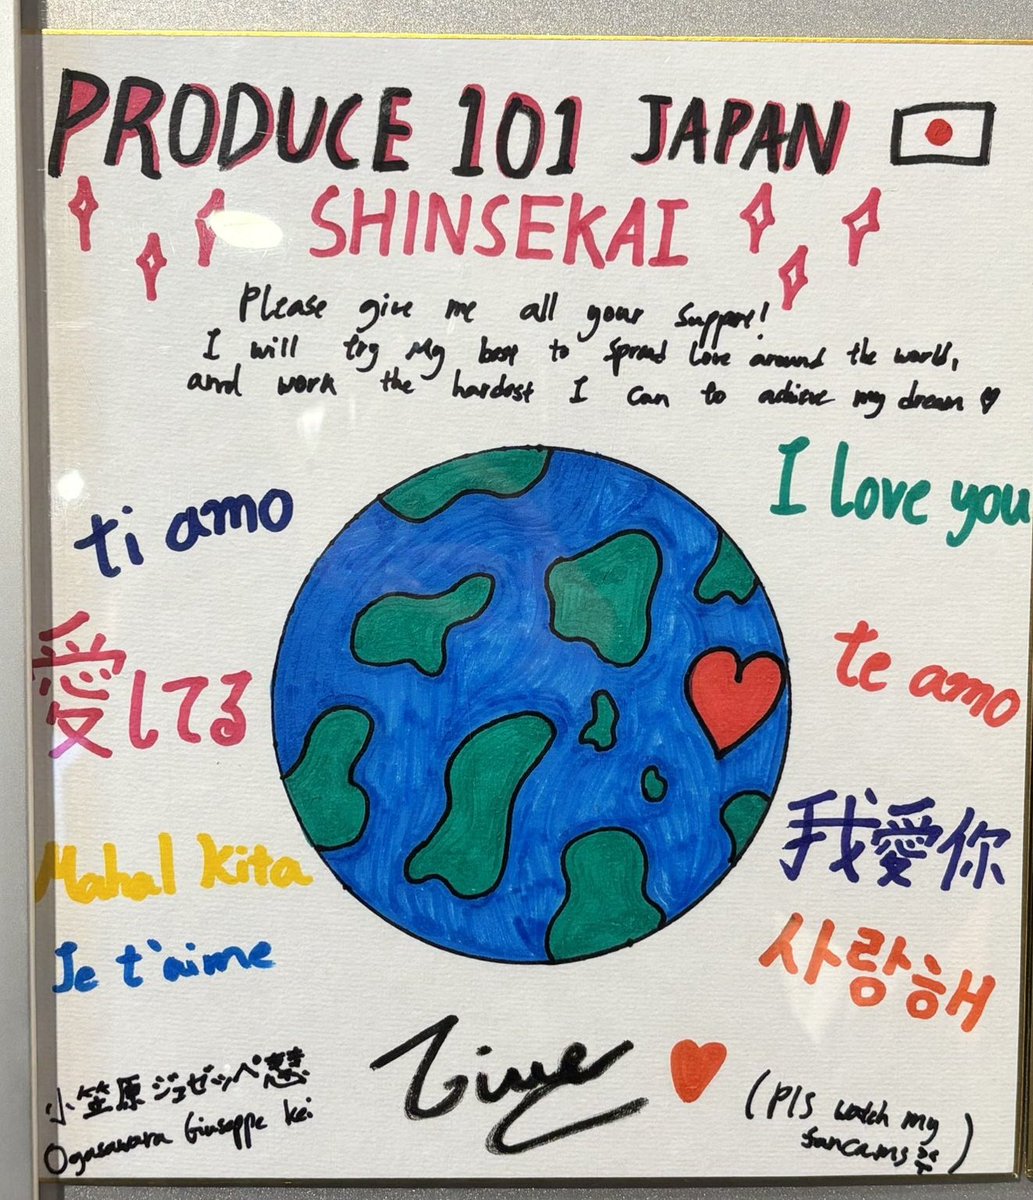 PRODUCE 101 JAPAN
SHINSEKAI
Please give me all your support!
I will try My best to spread love around the world,
and work the hardest I can to achieve my dream ♡
ti amo
I love you
愛してる
te amo
Mahal kita
我愛你
Je t'aime
사랑해
小笠原ジュゼッペ慧
Ogasawara Giuseppe Kei
(Pls watch my
fancams)